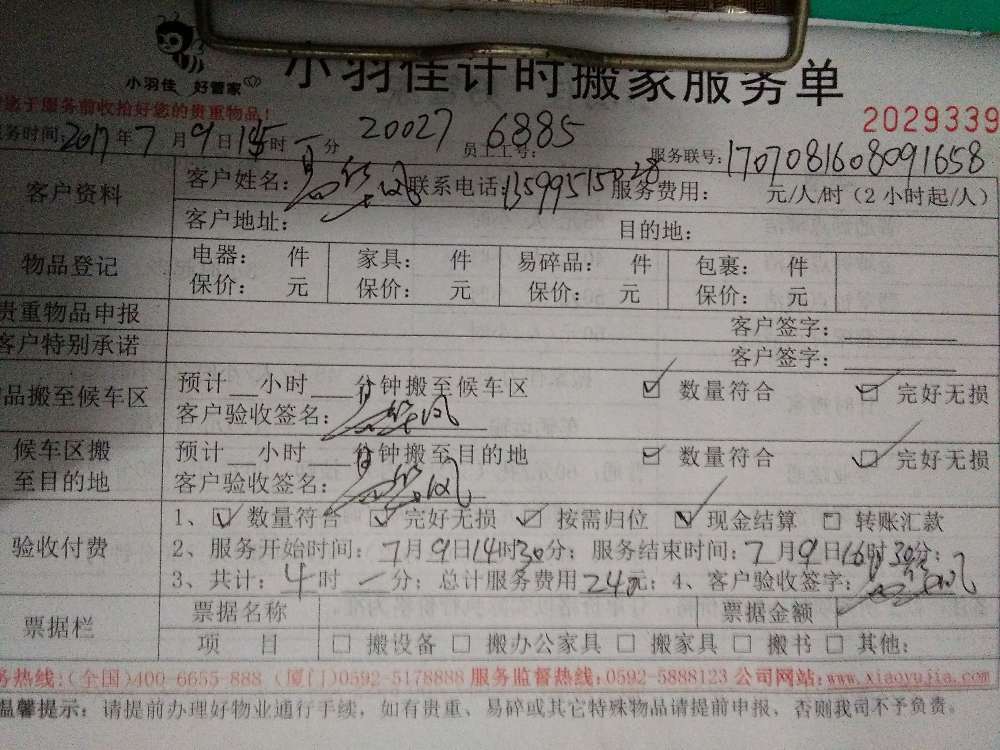 小羽佳 好管家
小羽佳计时搬家服务单
您于服务前收拾好您的贵重物品!
2029339
服务时间:2017年7月9日15时 分 20027 员工工号: 6885 服务联号:1707081608091658
客户资料 客户姓名: 联系电话: 服务费用: 元/人/时(2小时起/人)
客户地址: 目的地:
物品登记 电器: 件 家具: 件 易碎品: 件 包裹: 件
保价: 元 保价: 元 保价: 元 保价: 元
贵重物品申报 客户签字:
客户特别承诺 客户签字:
品搬至候车区 预计__小时___分钟搬至候车区 数量符合 完好无损
客户验收签名:
候车区搬至目的地 预计__小时___分钟搬至目的地 数量符合 完好无损
客户验收签名:
验收付费 1、数量符合 完好无损 按需归位 现金结算 转账汇款
2、服务开始时间:7月9日14时30分;服务结束时间:7月9日16时30分;
3、共计:4时一分;总计服务费用240元;4、客户验收签字:
票据栏 票据名称 票据金额
项 目 搬设备 搬办公家具 搬家具 搬书 其他:
务热线:(全国)400-6655-888 (厦门)0592-5178888 服务监督热线:0592-5888123 公司网站:www.xiaoyujia.com
温馨提示:请提前办理好物业通行手续,如有贵重、易碎或其它特殊物品请提前申报,否则我司不予负责。